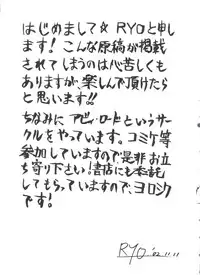 はじめまして☆ RYOと申し
ます! こんな原稿が掲載
されてしまうのは心苦しくも
ありますが、楽しんで頂けたら
と思います!!
ちなみに アビィ・ロードというサー
クルをやっています。コミケ等
参加していますので是非お立
ち寄り下さい! 書店にも委託
してもらっていますので、ヨロシク
です!
RYO '02 11.11